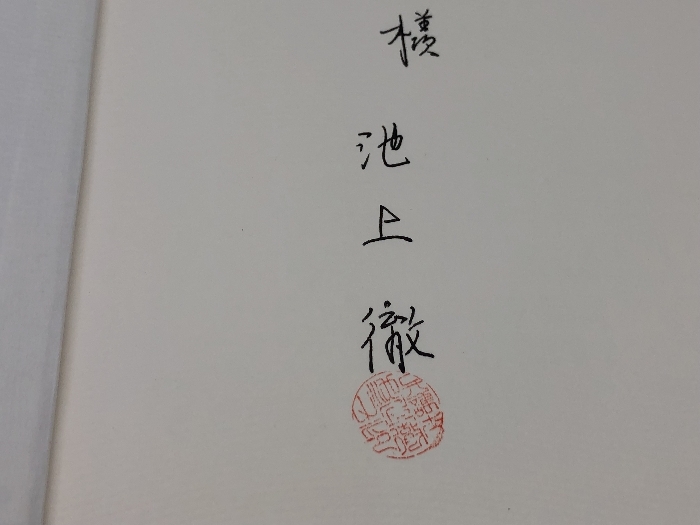 様
池上徹